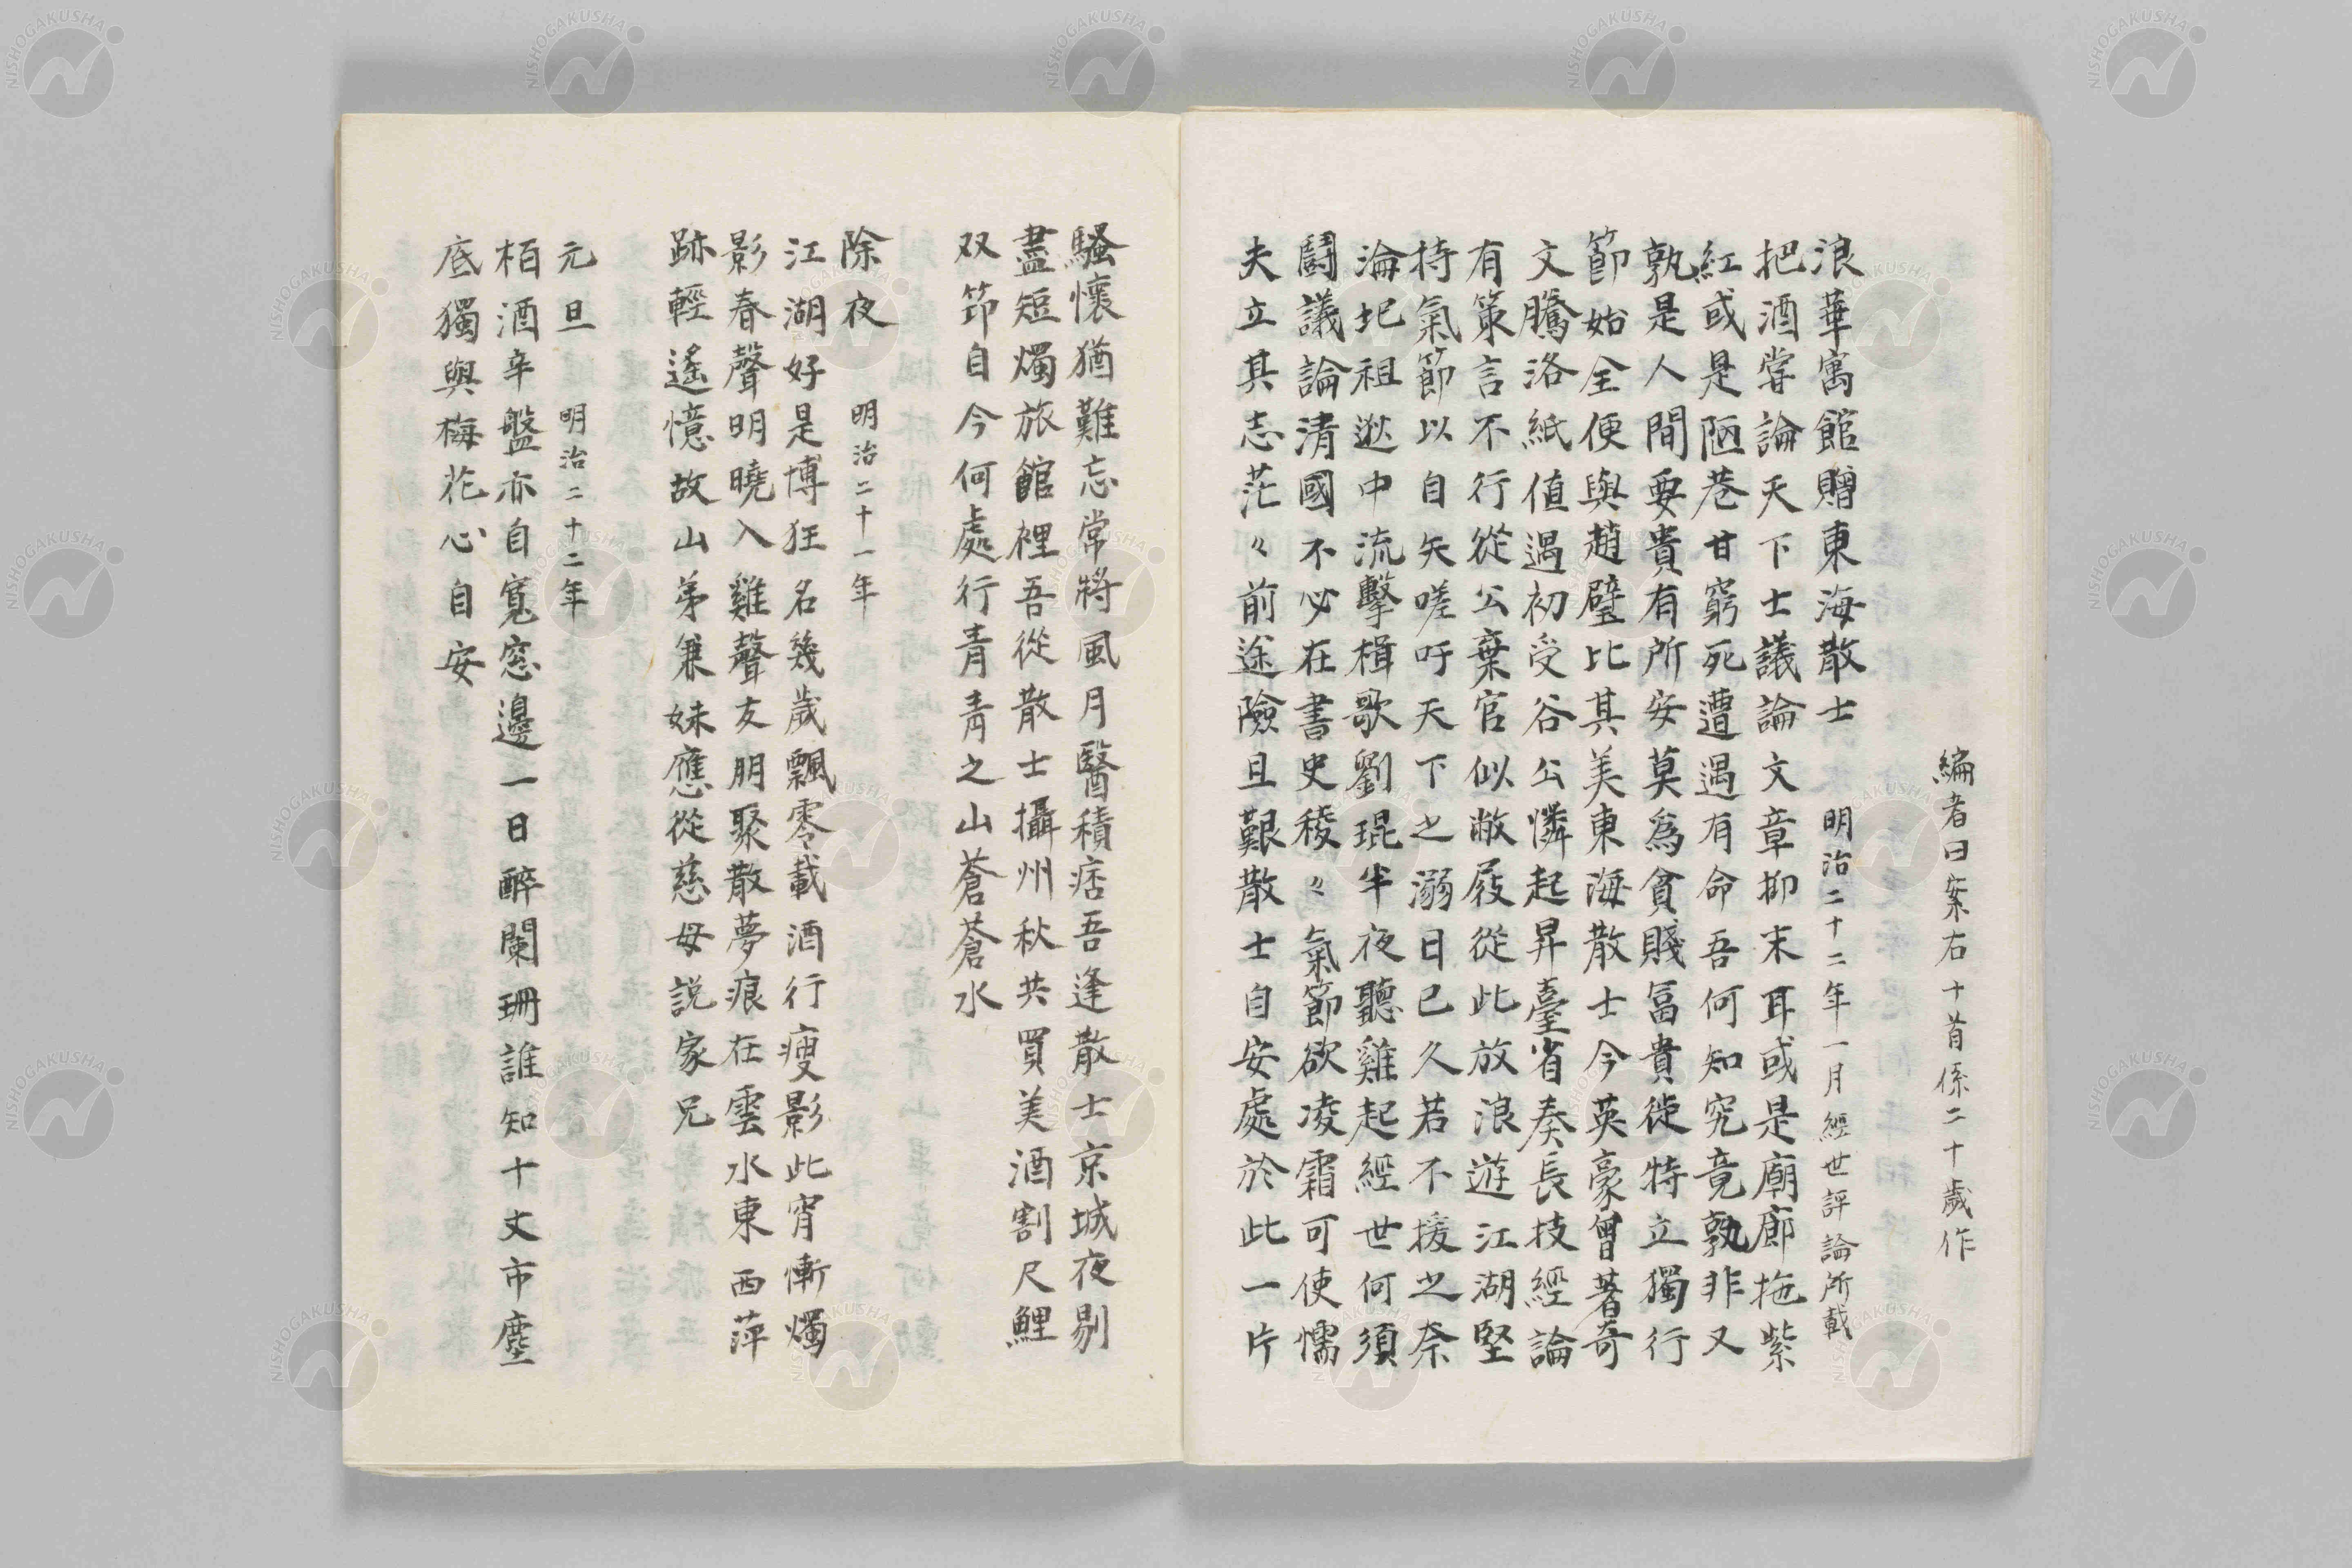 編者曰案右十首係二十歲作
浪華寓館贈東海散士 明治二十二年一月經世評論所載
把酒嘗論天下士議論文章抑末耳或是廟廊拖紫
紅或是陋巷甘窮死遭遇有命吾何知究竟孰非又
孰是人間要貴有所安莫爲貧賤富貴徙特立獨行
節始全便與趙璧比其美東海散士今英豪曾著奇
文騰洛紙値遇初受谷公憐起昇臺省奏長技經論
有策言不行從公棄官似敝屐從此放浪遊江湖堅
持氣節以自矢嗟吁天下之溺日已久若不援之奈
淪圯祖逖中流擊楫歌劉琨半夜聽雞起經世何須
鬪議論清國不必在書史稜々氣節欲凌霜可使懦
夫立其志茫々前途險且艱散士自安處於此一片
騷懷猶難忘常將風月醫積痞吾逢散士京城夜剔
盡短燭旅館裡吾從散士攝州秋共買美酒割尺鯉
双節自今何處行青青之山蒼蒼水
除夜 明治二十一年
江湖好是博狂名幾歲飄零載酒行瘦影此宵慚燭
影春聲明曉入雞聲友朋聚散夢痕在雲水東西萍
跡輕遙憶故山弟兼妹應從慈母説家兄
元旦 明治二十二年
栢酒辛盤亦自寬窓邊一日醉闌珊誰知十丈市塵
底獨與梅花心自安
NISHOGAKUSHA